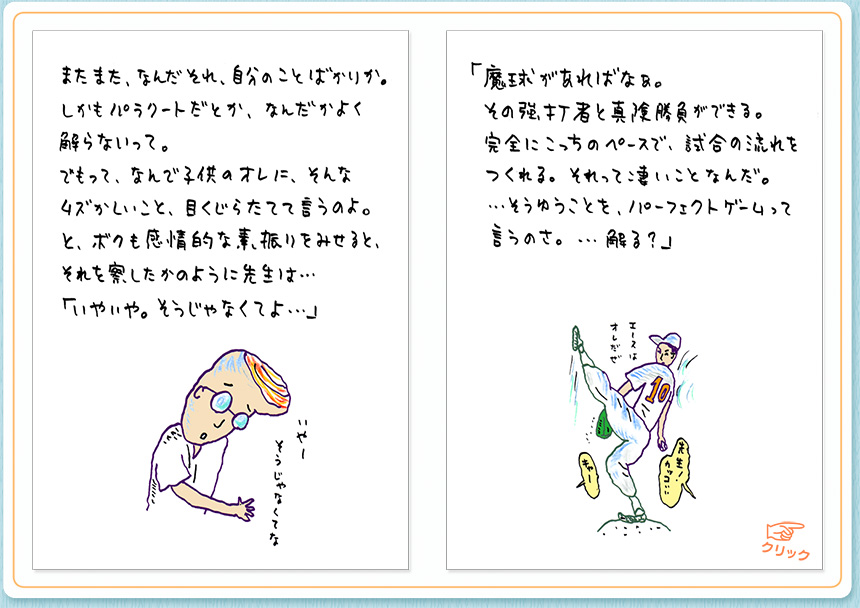 またまた、なんだそれ、自分のことばかりか。
しかもパラクートだとか、なんだかよく
解らないって。
でもって、なんで子供のオレに、そんな
ムズかしいこと、目くじらたてて言うのよ。
と、ボクも感情的な素振りをみせると、
それを察したかのように先生は…
「いやいや。そうじゃなくてよ…」
いやー
そうじゃなくてな
「魔球があればなぁ。
その強打者と真陰勝負ができる。
完全にこっちのペースで、試合の流れを
つくれる。それって凄いことなんだ。
…そうゆうことを、パーフェクトゲームって
言うのさ。…解る?」
エースは
オレだぜ
先生!
カッコいい
キャー
クリック